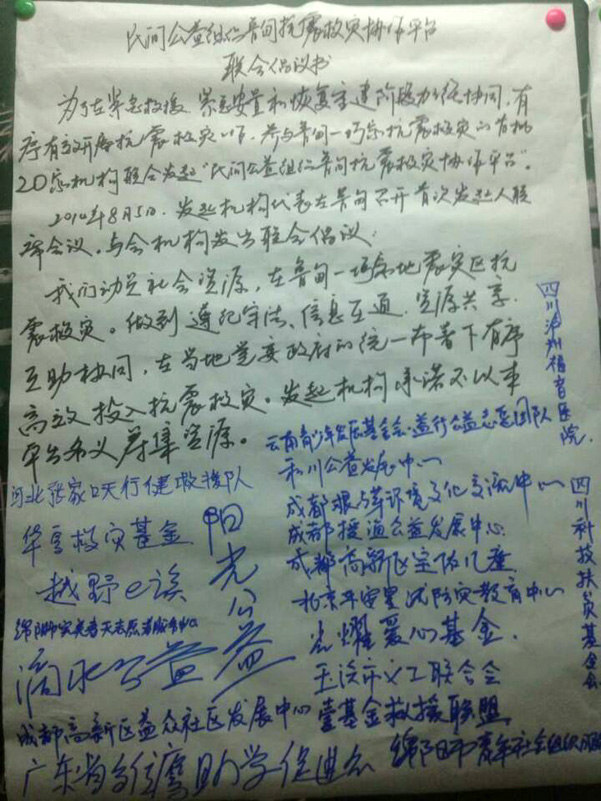 民间公益组织鲁甸抗震救灾协作平台
联合倡议书
为了在紧急救援、紧急安置和恢复重建阶段力统协同,有
序有效开展抗震救灾工作。参与鲁甸一巧家抗震救灾的首批
20家机构联合发起“民间公益组织鲁甸抗震救灾协作平台”。
2014年8月5日,发起机构代表在鲁甸召开首次发起人联
席会议,与会机构发出联合倡议:
我们动员社会资源,在鲁甸一巧家地震灾区抗
震救灾。做到遵纪守法、信息互通、资源共享、
互助协同,在当地党委政府的统一布署下有序
高效投入抗震救灾。发起机构承诺不以本
平台名义募集资源。
四川泸州福音医院
云南青少年发展基金会·益行公益志愿团队
河北张家口天行健救援队
公益发展中心
华夏救灾基金
阳光公益
成都根与芽环境文化交流中心
成都授渔公益发展中心
越野e族
成都高新区
四川科技扶贫基金会
北京平安星减防灾教育中心
光耀爱心基金
滴水公益
玉溪市义工联合会
成都高新区益众社区发展中心
壹基金救援联盟
广东省
助学促进会
绵阳市青年社会组织